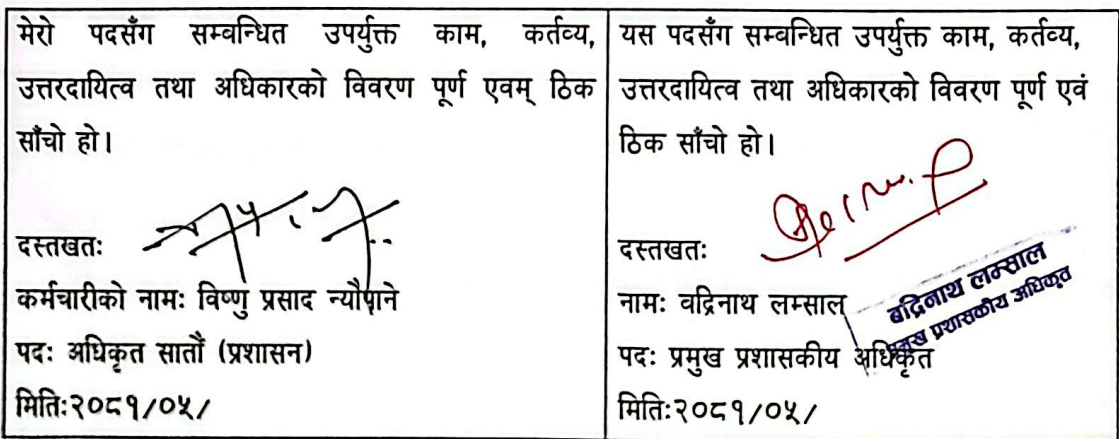 मेरो पदसँग सम्वन्धित उपर्युक्त काम, कर्तव्य,
उत्तरदायित्व तथा अधिकारको विवरण पूर्ण एवम् ठिक
साँचो हो।
दस्तखतः
कर्मचारीको नामः विष्णु प्रसाद न्यौपाने
पदः अधिकृत सातौं (प्रशासन)
मितिः२०८१/०५/
यस पदसँग सम्वन्धित उपर्युक्त काम, कर्तव्य,
उत्तरदायित्व तथा अधिकारको विवरण पूर्ण एवं
ठिक साँचो हो।
दस्तखतः
नामः वद्रिनाथ लम्साल
पदः प्रमुख प्रशासकीय अधिकृत
मितिः२०८१/०५/
बद्रिनाथ लम्साल
प्रमुख प्रशासकीय अधिकृत